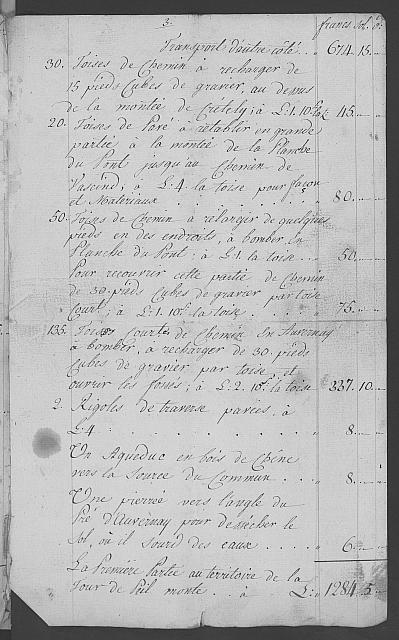 3.
francs sol. d.
Transport d'autre côté . . „ 674. 15. „
30. Toises de Chemin à recharger de
15 pieds Cubes de gravier, au desus
de la montée de Crétely; à L: 1. 10 s. la t. 45. „ „
20. Toises de Pavé à rétablir en grande
partie à la montée de la Planche
du Pont jusqu'au Chemin de
Vassind, à L: 4. la toise pour façon
et Matériaux . . . . . . . . . 80. „ „
50. Toises de Chemin à relargir de quelques
pieds en des endroits, à bomber en
Planche du Pont; à L: 1 la toise . . 50. „ „
Pour recouvrir cette partie de Chemin
de 30. pieds Cubes de gravier par toise
Court; à L: 1. 10 s. la toise . . . . „ 75. „ „
135. Toises Courte de Chemin En Auvernay
à bomber, à recharger de 30. pieds
Cubes de gravier par toise, et
ouvrir les foses; à L: 2. 10 s. la toise „ 337. 10. „
2. Rigoles de traverse pavées, à
L: 4. . . . . . . . . . . . „ 8. „ „
Un Aqueduc en bois de Chêne
vers la Source du Commun . . . „ 8. „ „
Une pierrée vers l'angle du
Pré d'Auvernay pour désécher le
Sol où il sourd des eaux . . . . „ 6. „ „
La Premiere Partie au territoire de la
Tour de Peil monte . . à L: „ 1284. 5. „